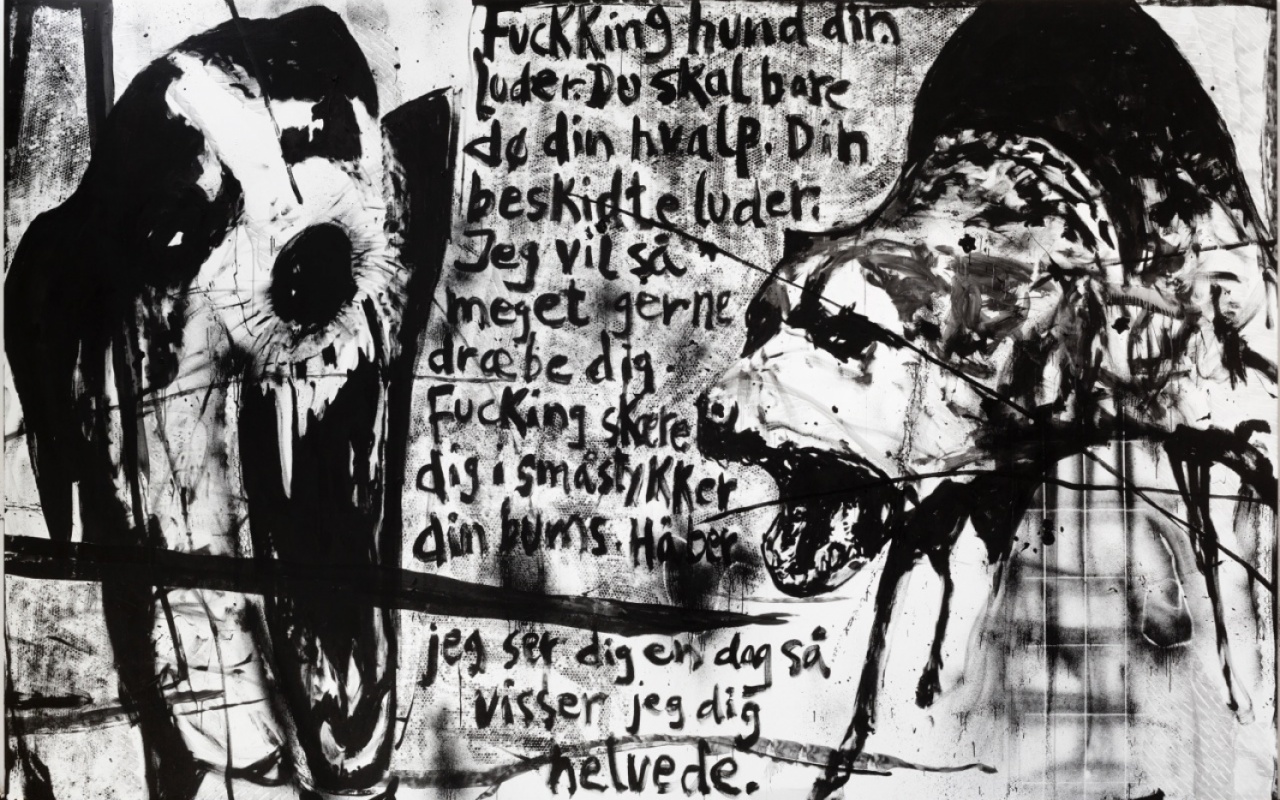 FucKKing hund din
luder. Du skal bare
dø din hvalp. Din
beskidte luder.
Jeg vil så
meget gerne
dræbe dig.
Fucking skære
dig i småstykker
din bums. Håber
jeg ser dig en dag så
visser jeg dig
helvede.